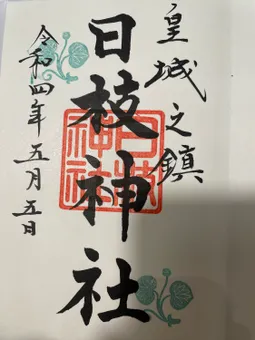 皇城之鎮
日枝神社
令和四年五月五日
日枝神社